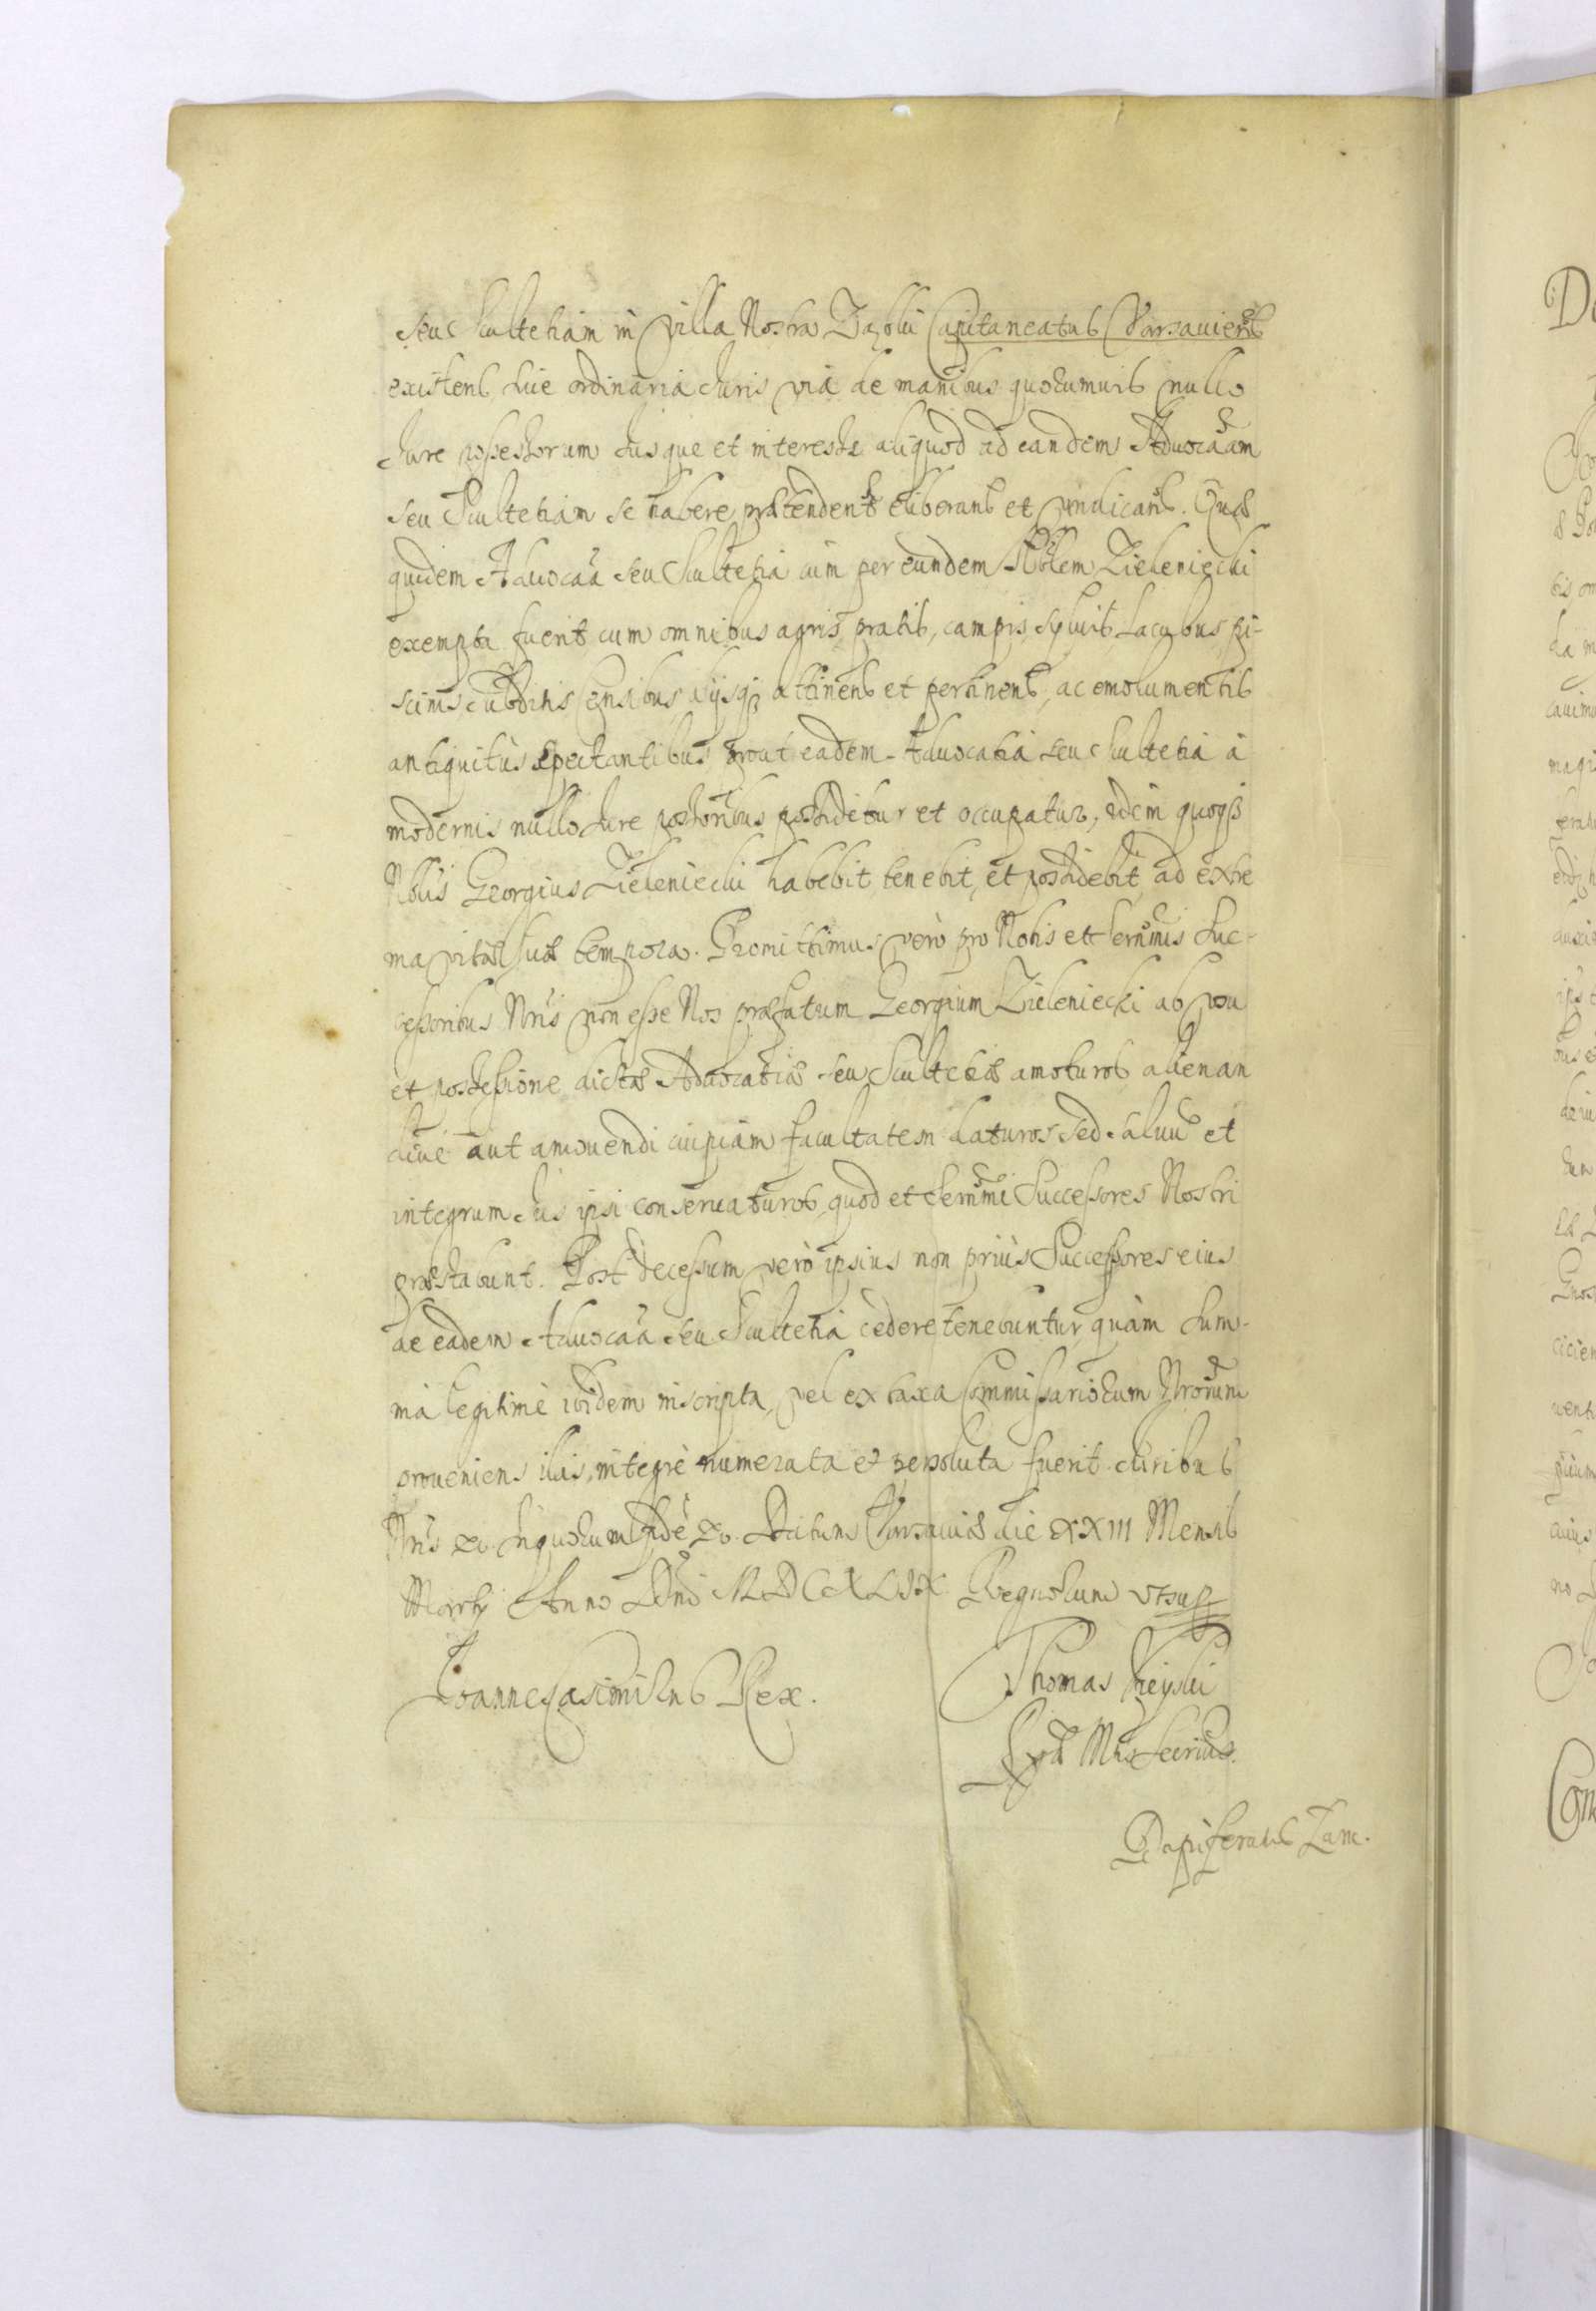 seu Scultetiam in Villa Nostra Ząbki Capitaneatus Varsauiens
existens siue ordinaria Juris via de manibus quorumuis nullo
Jure possessorum Jusque et interesse aliquod ad eandem Aduocaam
seu Scultetiam se habere prætendent eliberans et vindicans. Quæ
quidem Aduocaa seu Scultetia cum per eundem Nblem Zieleniecki
exempta fuerit cum omnibus agris, pratis, campis, syluis, Lacubus, pi-
scinis Subditis Censibus alijsq attinens et pertinens, ac emolumentis
antiquitùs spectantibus prout eadem Aduocatia seu Scultetia à
modernis nullo Jure possoribus possidetur et occupatur, idem quoq
Nblis Georgius Zieleniecki habebit, tenebit, et possidebit ad extre
ma vitæ suæ tempora. Promittimus verò pro Nobis et Sermis Suc-
cessoribus Nris non esse Nos præfatum Georgium Zieleniecki ab vsu
et possessione dictæ Aduocatiæ seu Scultetiæ amoturos alienan
diue aut amouendi cuipiam facultatem daturos Sed saluu et
integrum Jus ipsi conseruaturos, quod et Sermi Successores Nostri
præstabunt. Post decessum verò ipsius non priùs Successores eius
de eadem Aduocaa seu Scultetia cedere tenebuntur, quàm Sum-
ma legitimè ibidem inscripta, vel ex taxa Commissariorum Nrorum
proueniens illis, integrè numerata et persoluta fuerit. Juribus
Nris &c. Inquorum fidē &c. Datum Varsauiæ die XXIII Mensis
Martij Anno Dni MDCXLIX Regnorum vtsup
Joannes Casimirus Rex.
Thomas Vieyski
SRM Secrius.
Dapiferatus Zam.